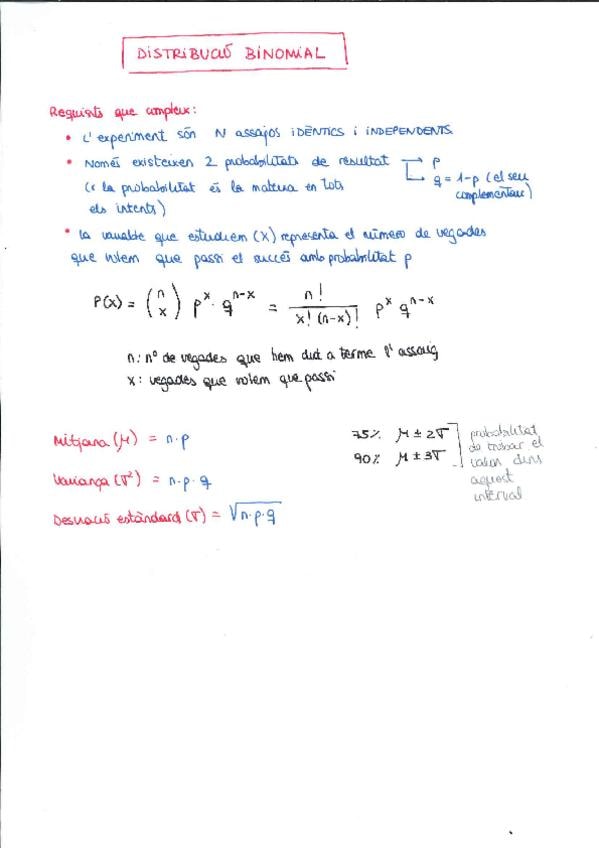 DISTRIBUCIÓ BINOMIAL
Requisits que compleix:
• L'experiment són N assajos IDÈNTICS i INDEPENDENTS.
• Només existeixen 2 probabilitats de resultat → p
(i la probabilitat és la mateixa en tots → q = 1-p (el seu
els intents) complementari)
• La variable que estudiem (X) representa el número de vegades
que volem que passi el succés amb probabilitat p
P(x) = (n x) p^x · q^(n-x) = n! / x! (n-x)! p^x q^(n-x)
n: nº de vegades que hem dut a terme l'assaig
x: vegades que volem que passi
Mitjana (μ) = n·p
Variança (σ²) = n·p·q
Desviació estàndard (σ) = √n·p·q
75% μ ± 2σ
90% μ ± 3σ
probabilitat
de trobar el
valor dins
aquest
interval